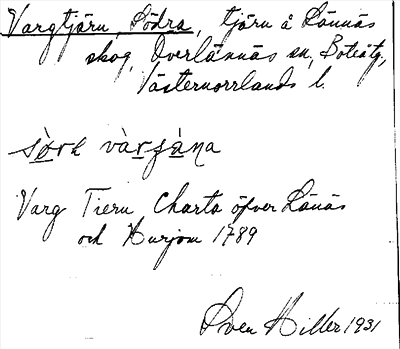 Vargtjärn, Södra, tjärn å Lännäs
skog, Överlännäs sn, Boteåtg,
Västernorrlands l.
Varg Tiern Charta öfver Länäs
och Kurjom 1789
Sven Hiller 1931